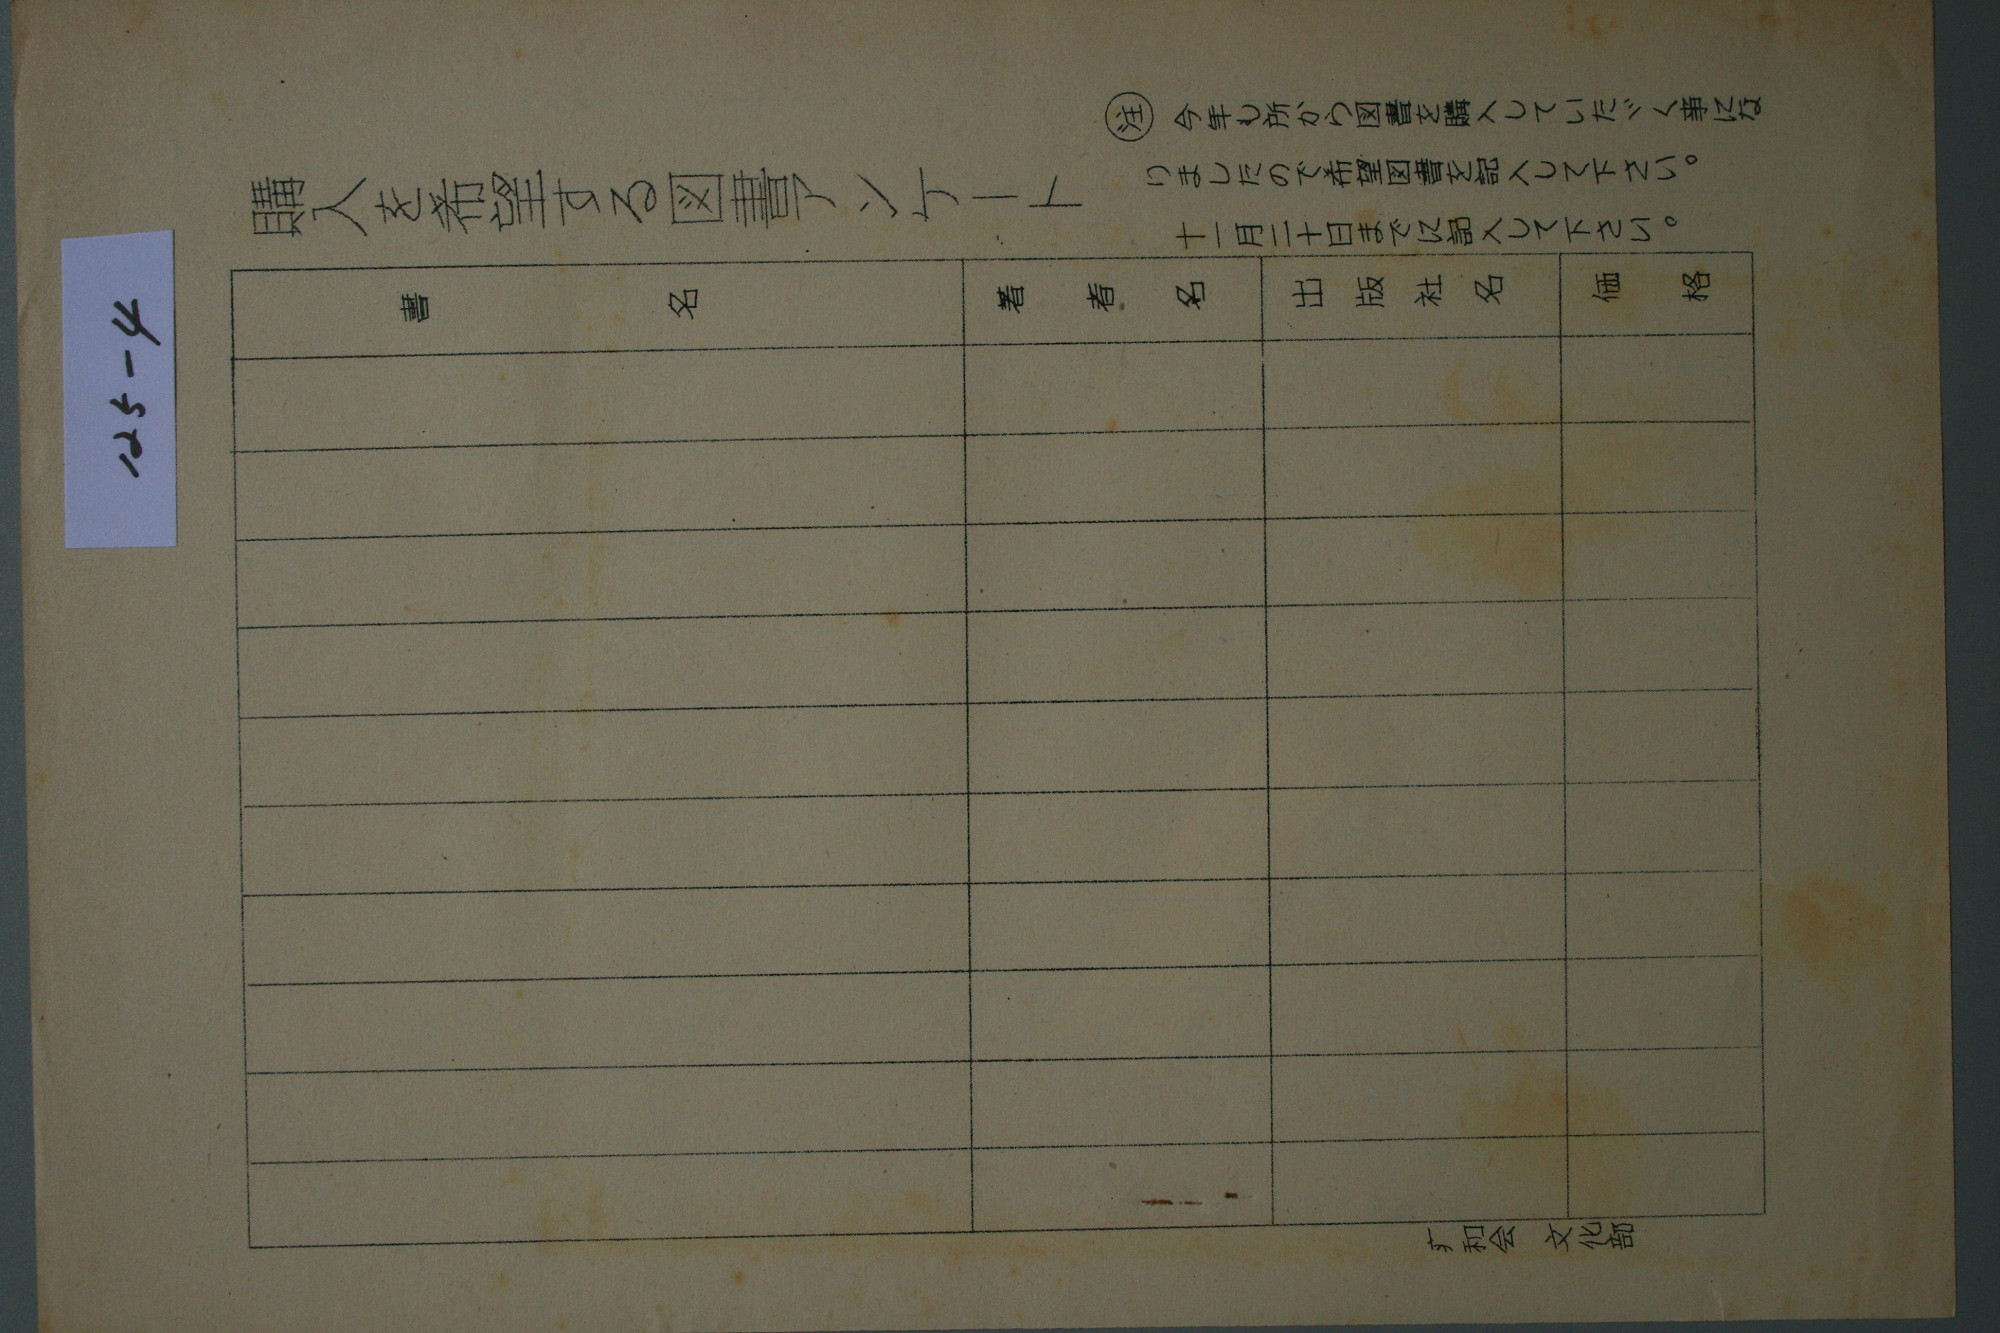 125-4
購入を希望する図書アンケート
注 今年も所から図書を購入していただく事にな
りましたので希望図書を記入して下さい。
十一月二十日までに記入して下さい。
書名 著者名 出版社名 価格
和会 文化部